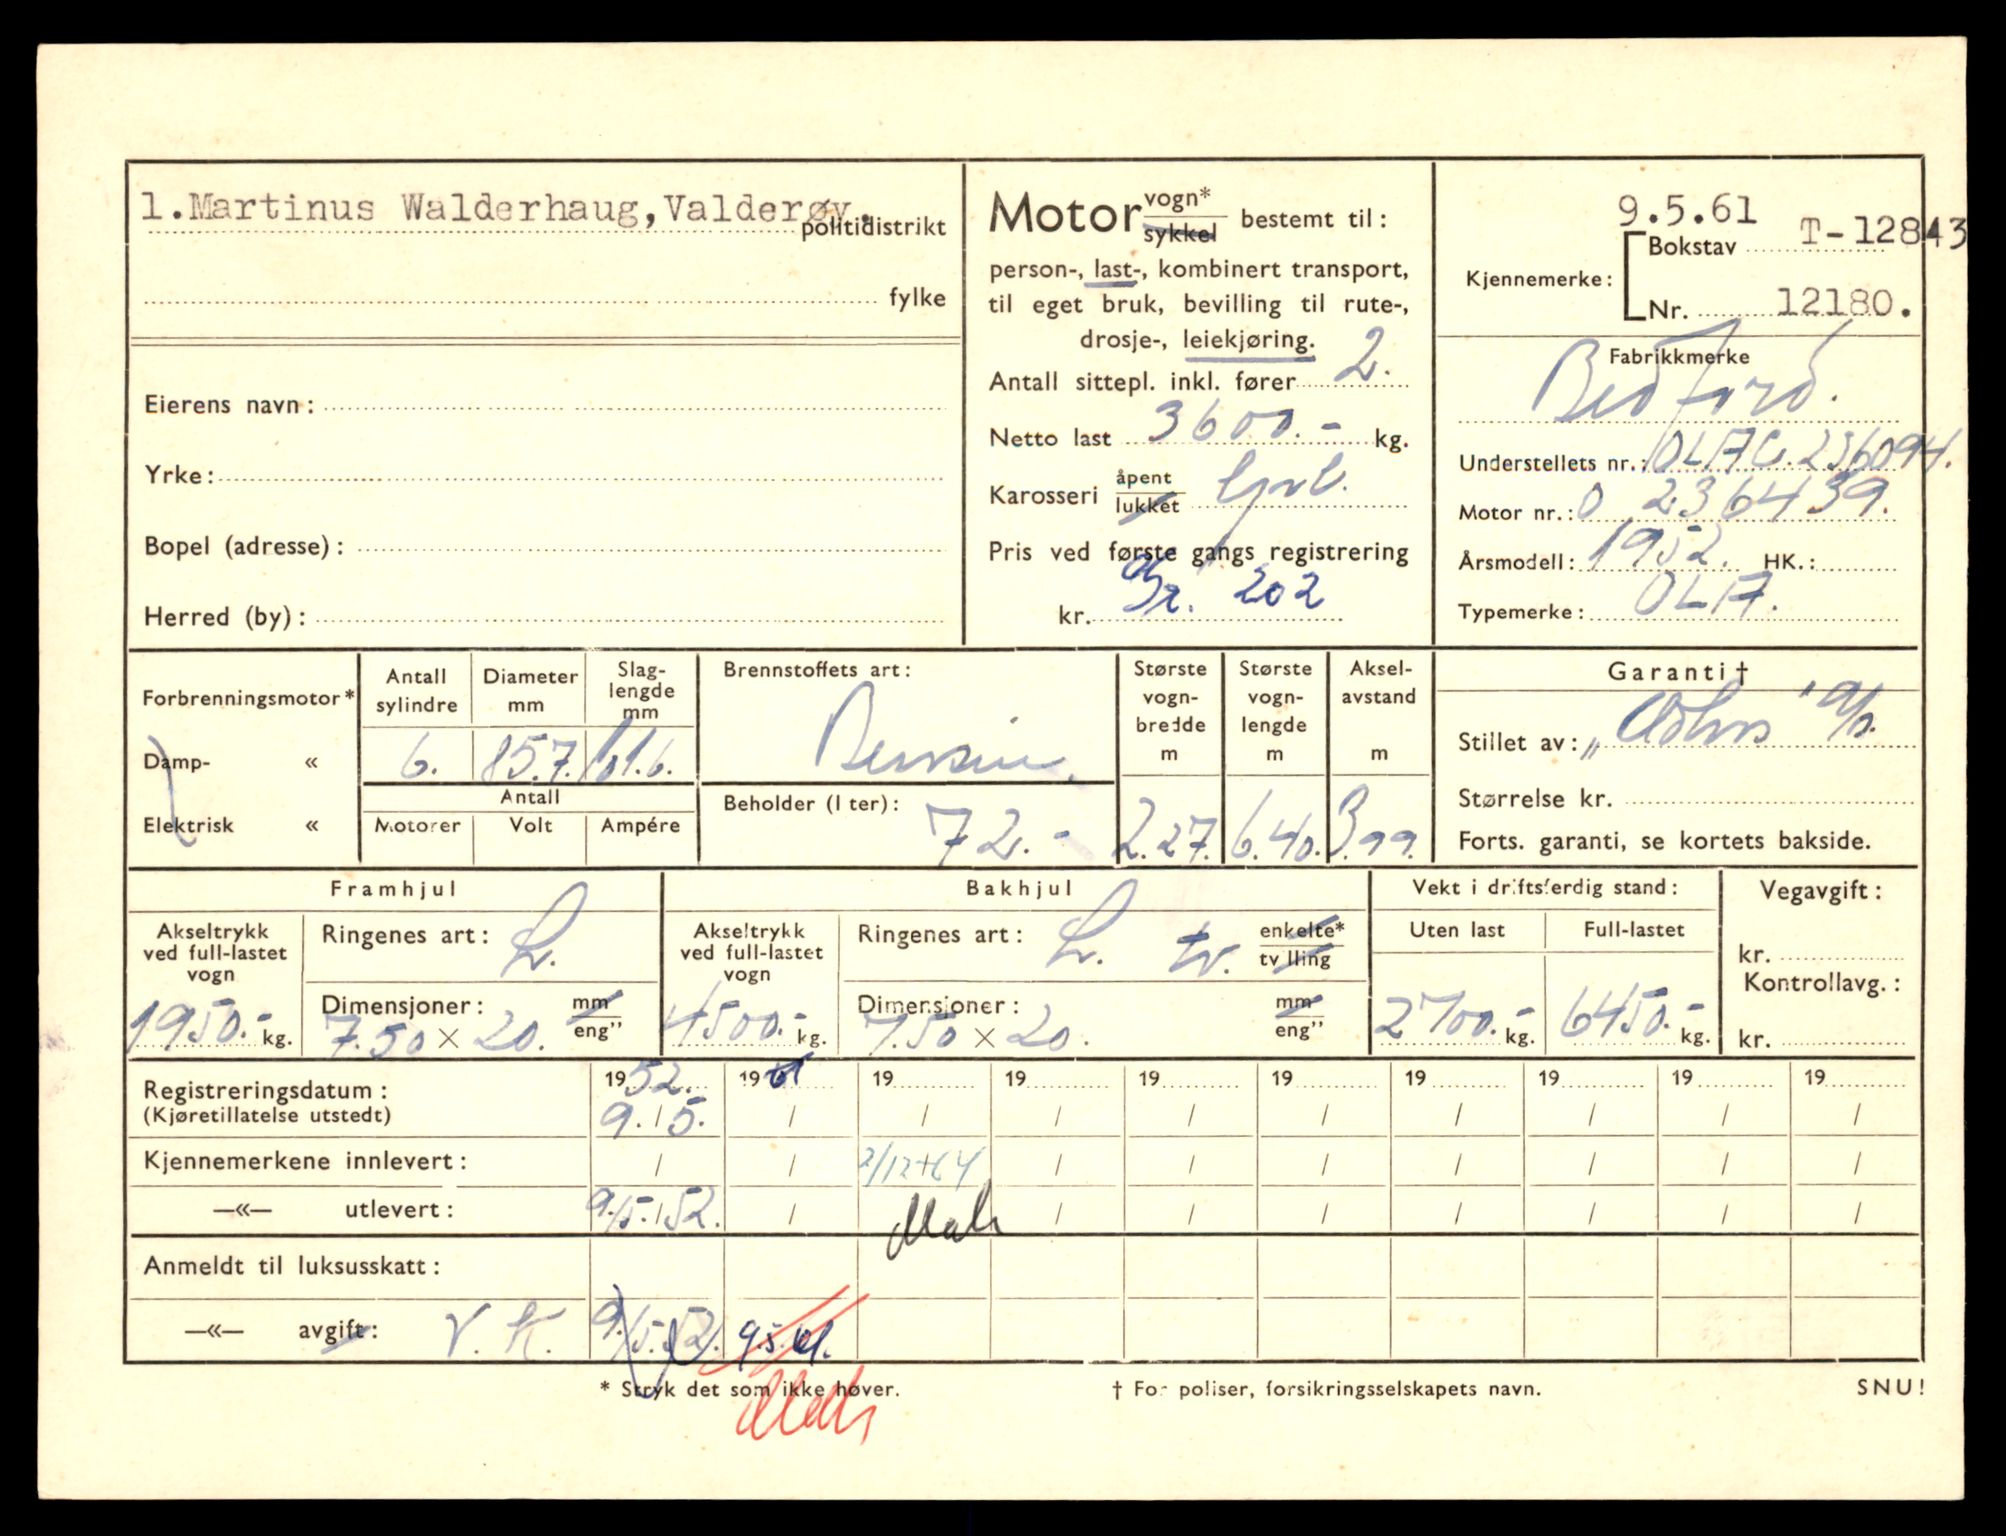 1.Martinus Walderhaug,Valderøy.
politidistrikt
fylke
Eierens navn:
Yrke:
Bopel (adresse):
Herred (by):
Motor vogn* sykkel bestemt til:
person-, last-, kombinert transport,
til eget bruk, bevilling til rute-,
drosje-, leiekjøring.
Antall sittepl. inkl. fører 2.
Netto last 3600.- kg.
Karosseri åpent lukket
Pris ved første gangs registrering
kr. 202
9.5.61
Kjennemerke: Bokstav T-12843
Nr. 12180.
Fabrikkmerke
Bedford.
Understellets nr.: OLAC.236094.
Motor nr.: 0 236439.
Årsmodell: 1952. HK.:
Typemerke: OLA.
Forbrenningsmotor*
Damp- «
Elektrisk «
Antall sylindre 6.
Diameter mm 85.7.
Slaglengde mm 101.6.
Antall
Motorer Volt Ampére
Brennstoffets art:
Bensin.
Beholder (l ter): 72.-
Største vognbredde m 2.27.
Største vognlengde m 6.40.
Akselavstand m 3.99.
Garanti†
Stillet av:
Størrelse kr.
Forts. garanti, se kortets bakside.
Framhjul
Akseltrykk ved full-lastet vogn 1950.- kg.
Ringenes art: L.
Dimensjoner: mm eng”
7.50 × 20.
Bakhjul
Akseltrykk ved full-lastet vogn 4500.- kg.
Ringenes art: L. tv. enkelte* tvilling
Dimensjoner: mm eng”
7.50 × 20.
Vekt i driftsferdig stand:
Uten last 2700.- kg.
Full-lastet 6450.- kg.
Vegavgift:
kr.
Kontrollavg.:
kr.
Registreringsdatum: 1952. 1961 19 19 19 19 19 19 19 19
(Kjøretillatelse utstedt) 9./5. / / / / / / / / /
Kjennemerkene innlevert: / / 2/12-64 / / / / / / /
—«— utlevert: 9./5.52. / / / / / / / /
Anmeldt til luksusskatt:
—«— avgift: V. K. 9./5.52. 9.5.61.
* Stryk det som ikke høver.
† For poliser, forsikringsselskapets navn.
SNU!